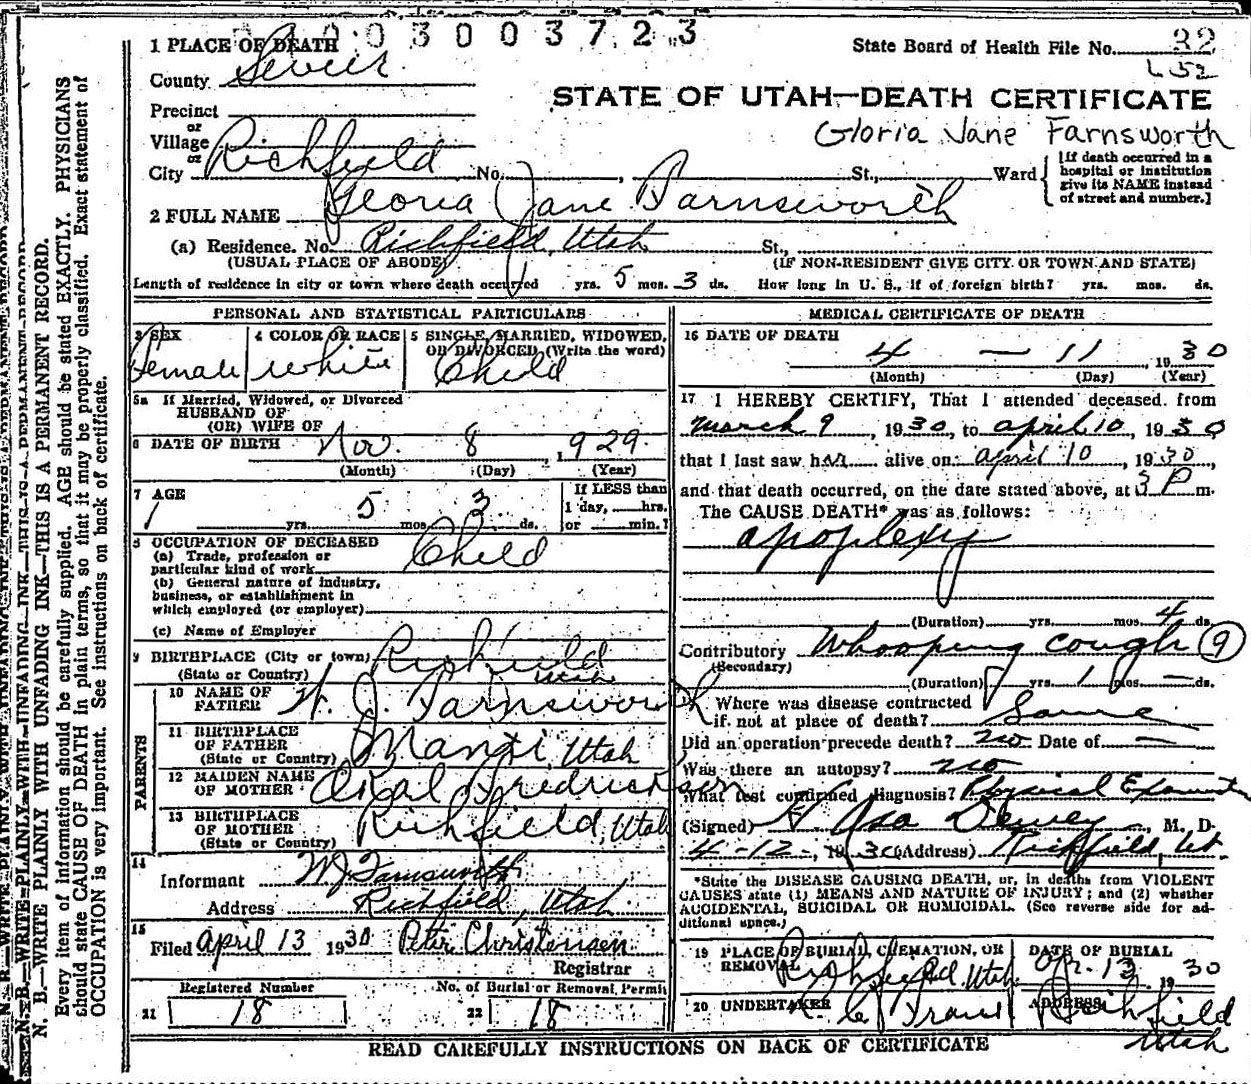 003003723
1 PLACE OF DEATH
State Board of Health File No. 32
County Sevier
STATE OF UTAH—DEATH CERTIFICATE
Precinct
or
Village
Gloria Jane Farnsworth
or
City Richfield No. , St., Ward
[If death occurred in a
hospital or institution
give its NAME instead
of street and number.]
2 FULL NAME Gloria Jane Farnsworth
(a) Residence. No. Richfield, Utah St.,
(USUAL PLACE OF ABODE) (IF NON-RESIDENT GIVE CITY OR TOWN AND STATE)
Length of residence in city or town where death occurred yrs. 5 mos. 3 ds. How long in U. S., if of foreign birth? yrs. mos. ds.
PERSONAL AND STATISTICAL PARTICULARS
3 SEX
Female
4 COLOR OR RACE
White
5 SINGLE, MARRIED, WIDOWED,
OR DIVORCED (Write the word)
Child
5a If Married, Widowed, or Divorced
HUSBAND OF
(OR) WIFE OF
6 DATE OF BIRTH Nov. 8, 1929
(Month) (Day) (Year)
7 AGE
yrs. 5 mos. 3 ds.
If LESS than
1 day, hrs.
or min.?
8 OCCUPATION OF DECEASED
(a) Trade, profession or
particular kind of work Child
(b) General nature of industry,
business, or establishment in
which employed (or employer)
(c) Name of Employer
9 BIRTHPLACE (City or town) Richfield
(State or Country) Utah
PARENTS
10 NAME OF
FATHER W. J. Farnsworth
11 BIRTHPLACE
OF FATHER
(State or Country) Manti, Utah
12 MAIDEN NAME
OF MOTHER Fredrickson
13 BIRTHPLACE
OF MOTHER
(State or Country) Richfield, Utah
14
Informant W J Farnsworth
Address Richfield, Utah
15
Filed April 13 1930 Peter Christensen
Registrar
Registered Number No. of Burial or Removal Permit
21 18 22 18
MEDICAL CERTIFICATE OF DEATH
16 DATE OF DEATH
4 — 11, 1930
(Month) (Day) (Year)
17 I HEREBY CERTIFY, That I attended deceased from
March 9, 1930, to April 10, 1930
that I last saw her alive on April 10, 1930,
and that death occurred, on the date stated above, at 3 P m.
The CAUSE DEATH* was as follows:
apoplexy
(Duration) yrs. mos. 4 ds.
Contributory Whooping Cough 9
(Secondary)
(Duration) yrs. 1 mos. — ds.
Where was disease contracted
if not at place of death? Same
Did an operation precede death? no Date of —
Was there an autopsy? no
What test confirmed diagnosis? Physical
(Signed) Asa Dewey, M. D.
4-12-, 1930 (Address) Richfield, Ut.
*State the DISEASE CAUSING DEATH, or, in deaths from VIOLENT
CAUSES state (1) MEANS AND NATURE OF INJURY; and (2) whether
ACCIDENTAL, SUICIDAL OR HOMICIDAL. (See reverse side for ad-
ditional space.)
19 PLACE OF BURIAL, CREMATION, OR
REMOVAL
Richfield Utah
DATE OF BURIAL
Apr. 13 1930
20 UNDERTAKER
ADDRESS
Richfield
Utah
READ CAREFULLY INSTRUCTIONS ON BACK OF CERTIFICATE
N. B.—WRITE PLAINLY WITH UNFADING INK—THIS IS A PERMANENT RECORD.
Every item of information should be carefully supplied. AGE should be stated EXACTLY. PHYSICIANS
should state CAUSE OF DEATH in plain terms, so that it may be properly classified. Exact statement of
OCCUPATION is very important. See instructions on back of certificate.